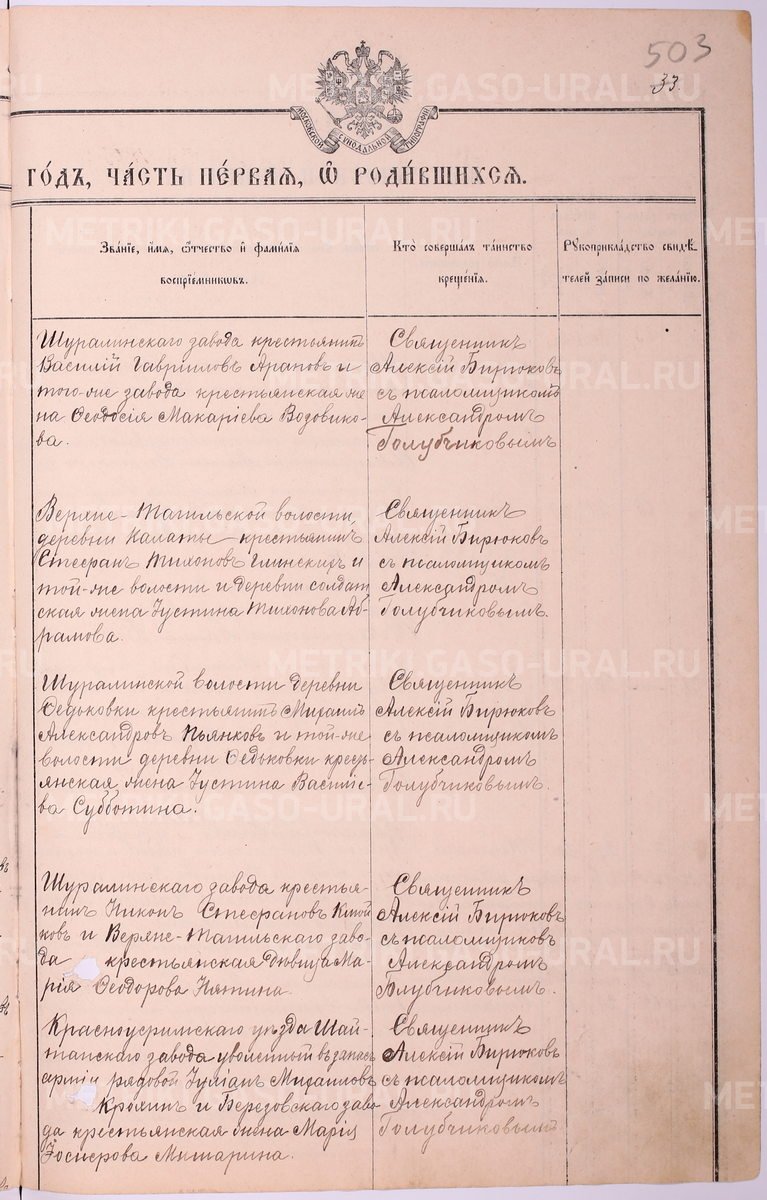 503
33
МОСКОВСКОЙ СУНОДАЛЬНОЙ ТИПОГРАФІИ
METRIKI.GASO-URAL.RU
го́дъ, ча́сть пе́рвая, ѡ҆ роди́вшихся.
Зва́нїе, и҆́мя, ѻ҆́тчество и҆ фами́лїя
воспрїе́мникѡвъ.
Кто̀ соверша́лъ та́инство
креще́нїя.
Рꙋкоприкла́дство свидѣ́-
телей за́писи по жела́нїю.
Шуралинскаго завода крестьянинъ
Василій Гавріиловъ Араповъ и
того-же завода крестьянская же
на Ѳеодосія Макаріева Водовико-
ва.
Священникъ
Алексій Бирюковъ
съ псаломщикомъ
Александромъ
Голубчиковымъ
Верхне-Тагильской волости,
деревни Калаты крестьянинъ
Стефанъ Тихоновъ Глинскихъ и
той-же волости и деревни солдат
ская жена Іустина Тихонова Аб-
рамова.
Священникъ
Алексій Бирюковъ
съ псаломщикомъ
Александромъ
Голубчиковымъ.
Шуралинской волости деревни
Ѳедьковки крестьянинъ Михаилъ
Александровъ Пьянковъ и той-же
волости деревни Ѳедьковки кресть-
янская жена Іустина Василіе-
ва Субботина.
Священникъ
Алексій Бирюковъ
съ псаломщикомъ
Александромъ
Голубчиковымъ.
Шуралинскаго завода крестья-
нинъ Никонъ Стефановъ
ковъ и Верхне-Тагильскаго заво-
да крестьянская дѣвица Ма-
рія Ѳеодорова Нятина.
Священникъ
Алексій Бирюковъ
съ псаломщиковъ
Александромъ
Голубчиковымъ.
Красноуфимскаго уѣзда Шай-
танскаго завода уволенный въ запасъ
арміи рядовой Іуліанъ Михаиловъ
Кромин и Березовскаго заво-
да крестьянская жена Марія
Іосифова Митарина.
Священникъ
Алексій Бирюковъ
съ псаломщикомъ
Александромъ
Голубчиковымъ